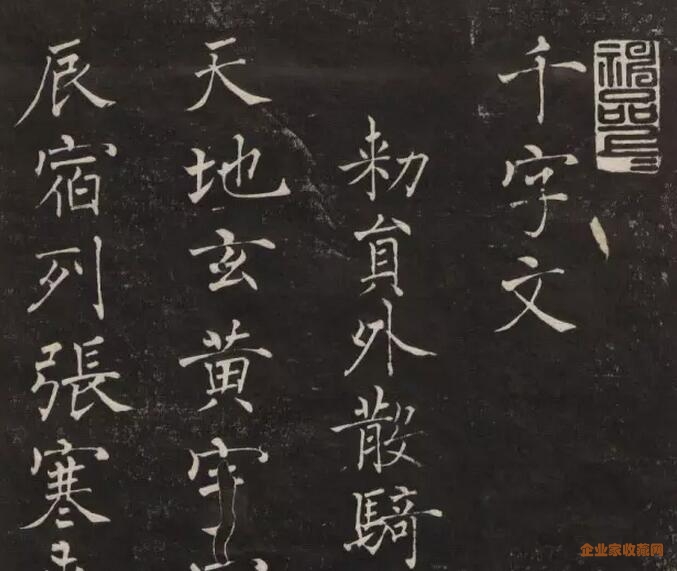 千字文
勑員外散騎
天地玄黄宇
辰宿列張寒
企业家收藏网